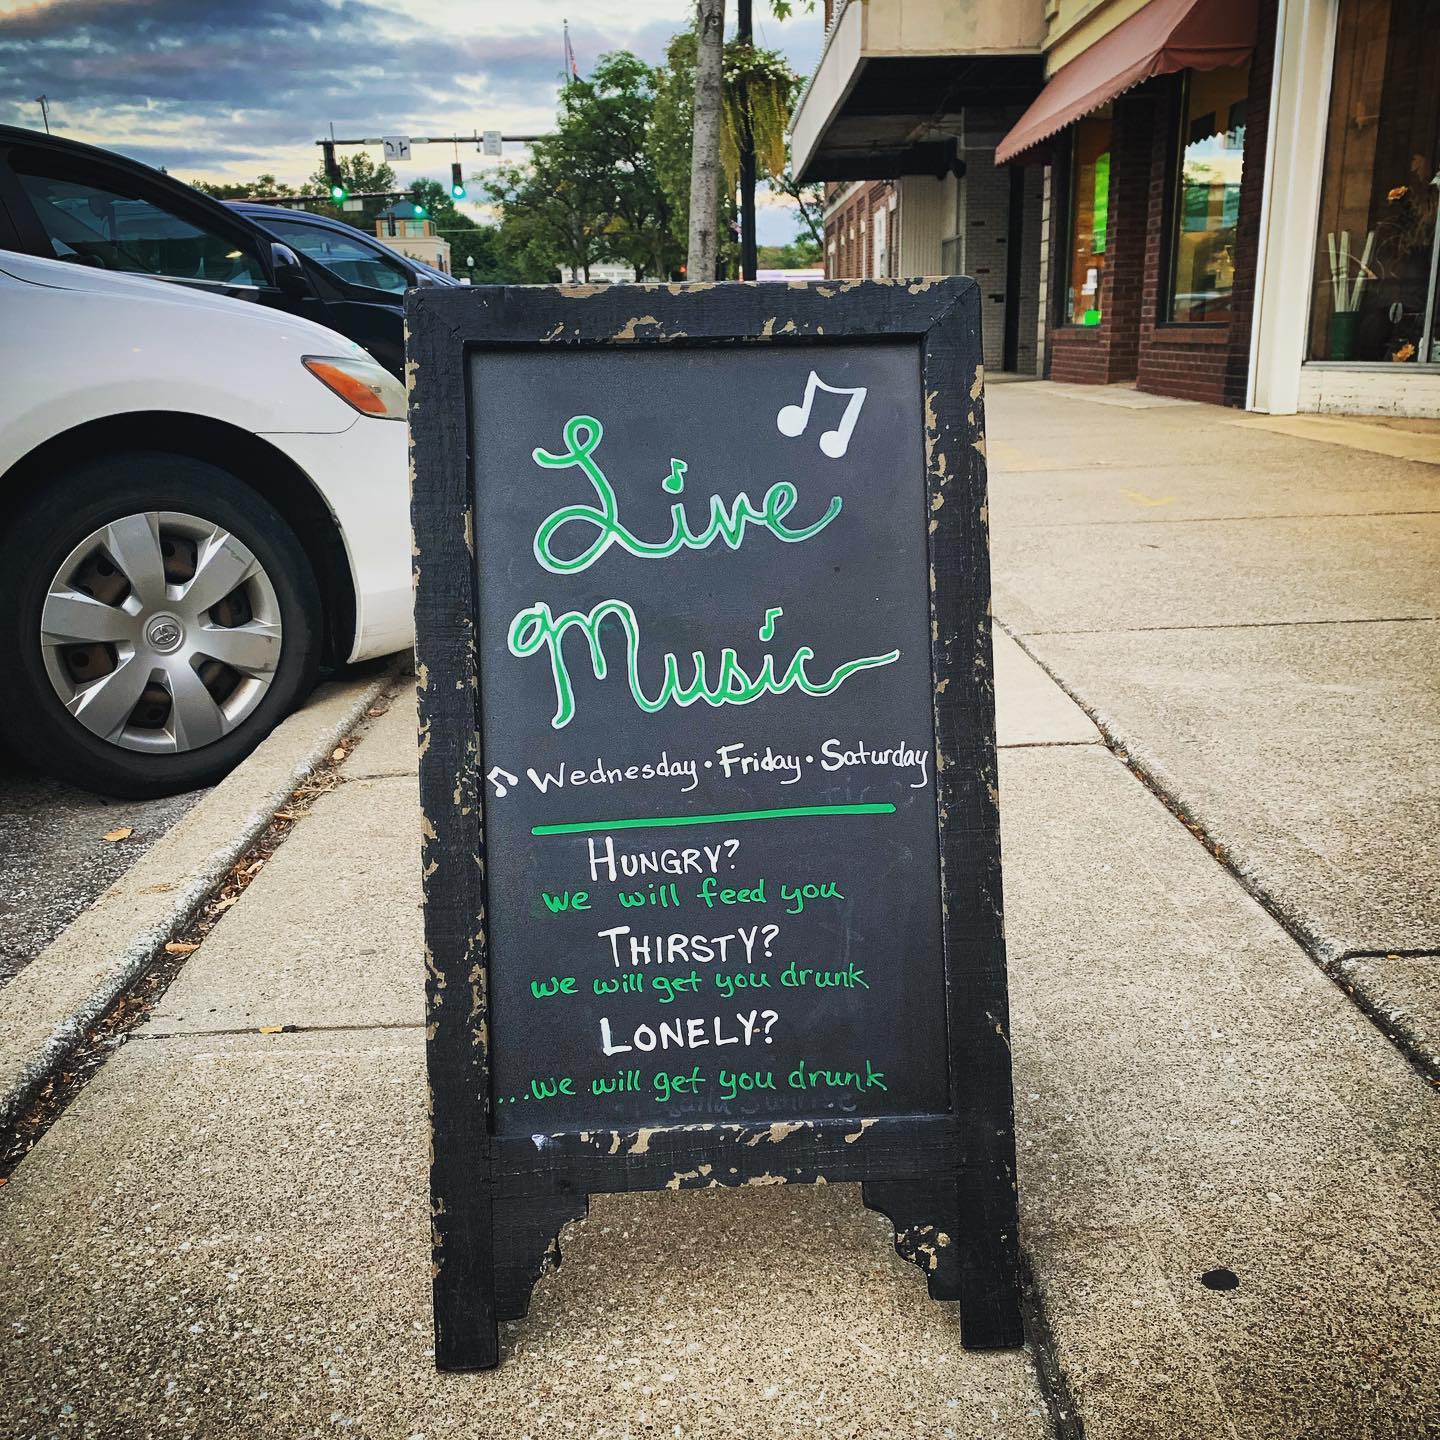 Live
Music
Wednesday • Friday • Saturday
HUNGRY?
we will feed you
THIRSTY?
we will get you drunk
LONELY?
...we will get you drunk